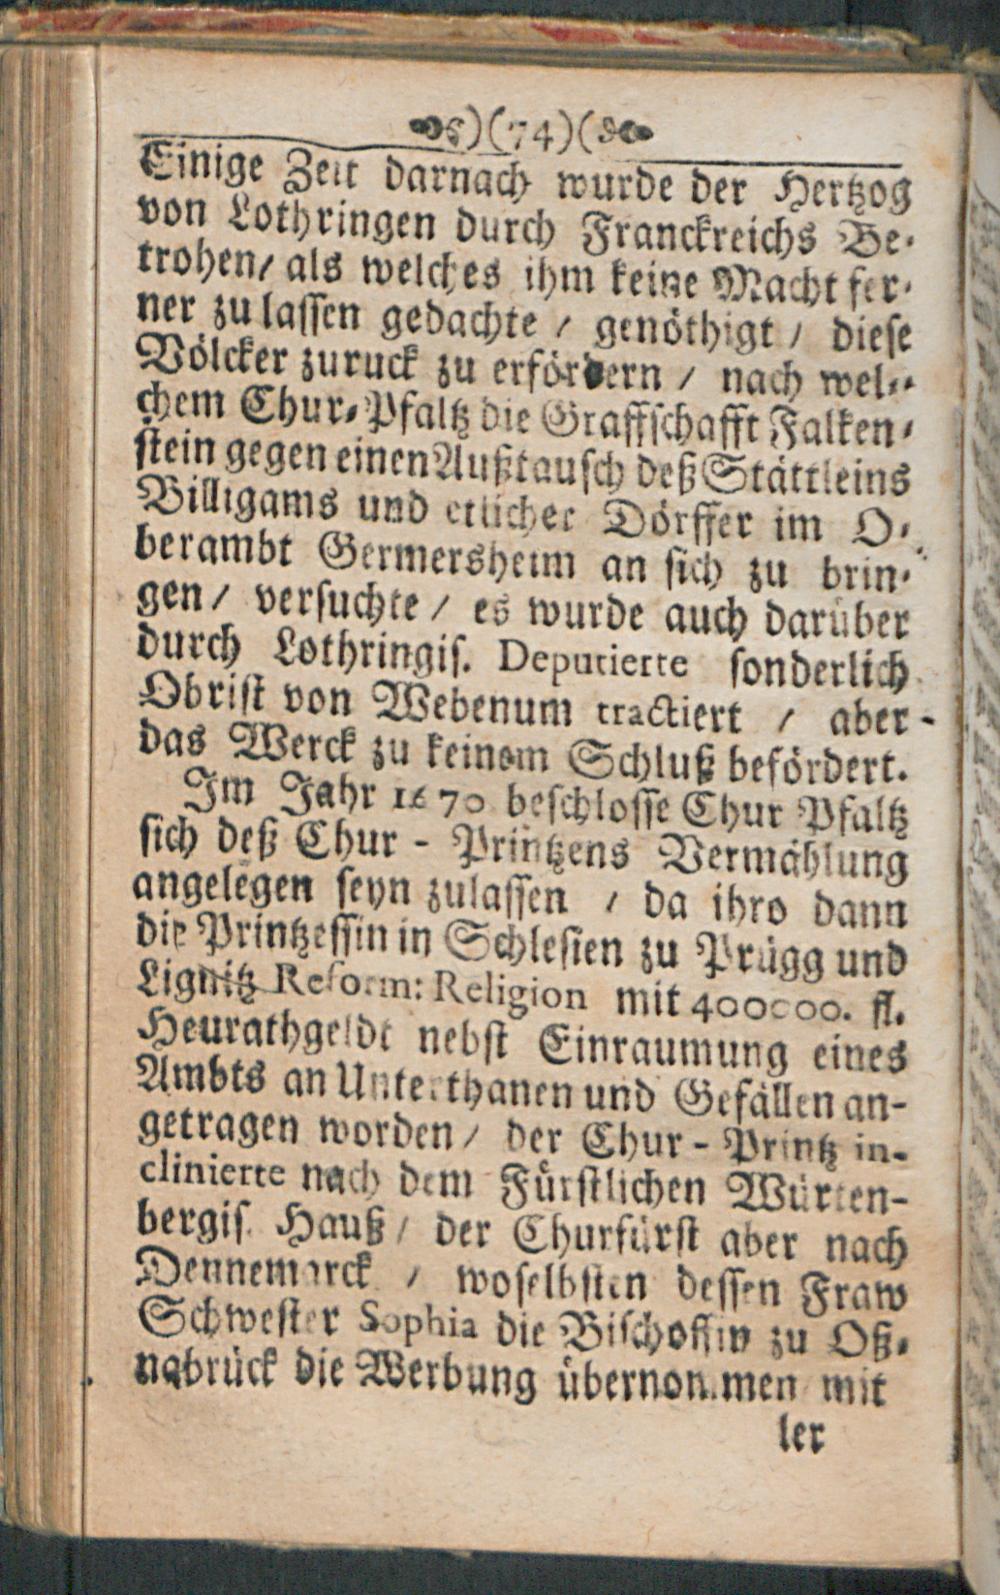 )(74)(
Einige Zeit darnach wurde der Hertzog
von Lothringen durch Franckreichs Be-
trohen/ als welches ihm keine Macht fer-
ner zu lassen gedachte / genöthigt / diese
Völcker zuruck zu erfördern / nach wel-
chem Chur-Pfaltz die Graffschafft Falken-
stein gegen einen Außtausch deß Stättleins
Billigams und etlicher Dörffer im O-
berambt Germersheim an sich zu brin-
gen / versuchte / es wurde auch darüber
durch Lothringis. Deputierte sonderlich
Obrist von Webenum tractiert / aber
das Werck zu keinem Schluß befördert.
Im Jahr 1670 beschlosse Chur Pfaltz
sich deß Chur-Printzens Vermählung
angelegen seyn zulassen / da ihro dann
die Printzessin in Schlesien zu Prügg und
Lignitz Reform: Religion mit 400000. fl.
Heurathgeldt nebst Einraumung eines
Ambts an Unterthanen und Gefällen an-
getragen worden / der Chur-Printz in-
clinierte nach dem Fürstlichen Würten-
bergis. Hauß / der Churfürst aber nach
Dennemarck / woselbsten dessen Fraw
Schwester Sophia die Bischoffin zu Oß-
nabrück die Werbung übernommen mit
ler